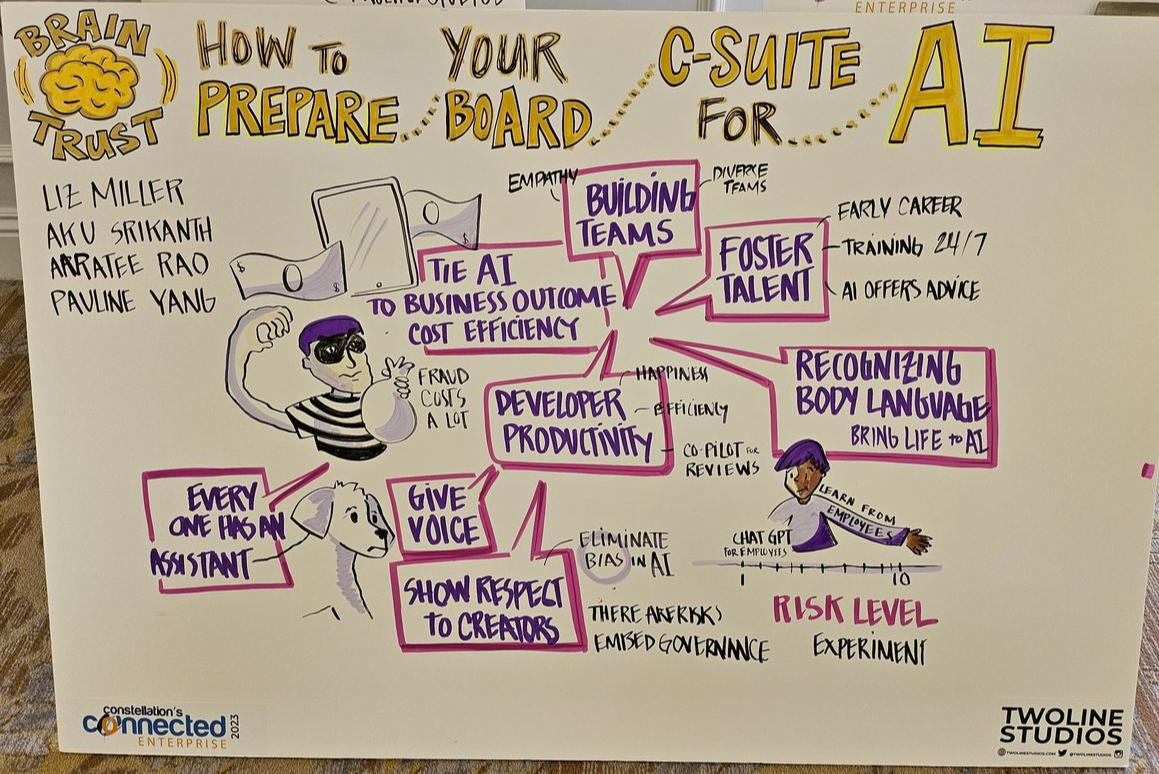 ENTERPRISE
BRAIN
TRUST
HOW TO
PREPARE
YOUR
BOARD
C-SUITE
FOR
AI
LIZ MILLER
AKU SRIKANTH
AARATEE RAO
PAULINE YANG
EMPATHY
BUILDING
TEAMS
DIVERSE
TEAMS
FOSTER
TALENT
EARLY CAREER
TRAINING 24/7
AI OFFERS ADVICE
TIE AI
TO BUSINESS OUTCOME
COST EFFICIENCY
$
$
$
FRAUD
COSTS
A LOT
DEVELOPER
PRODUCTIVITY
HAPPINESS
EFFICIENCY
CO-PILOT FOR
REVIEWS
RECOGNIZING
BODY LANGUAGE
BRING LIFE TO AI
EVERY
ONE HAS AN
ASSISTANT
GIVE
VOICE
SHOW RESPECT
TO CREATORS
ELIMINATE
BIAS IN AI
THERE ARE RISKS
EMBED GOVERNANCE
LEARN FROM
EMPLOYEES
CHAT GPT
FOR EMPLOYEES
1
10
RISK LEVEL
EXPERIMENT
constellation's
connected
ENTERPRISE
2023
TWOLINE
STUDIOS
TWOLINESTUDIOS.COM @TWOLINESTUDIOS